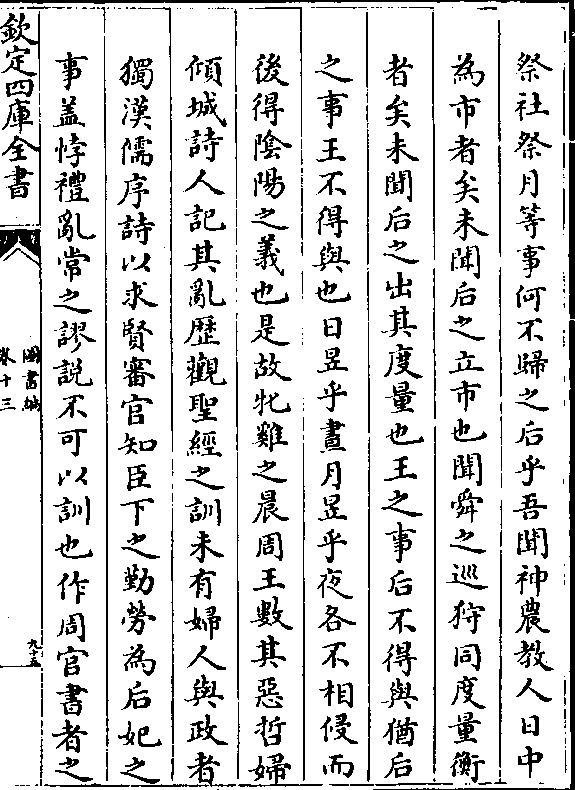 祭社祭月等事何不歸之后乎吾聞神農教人日中
為市者矣未聞后之立市也聞舜之巡狩同度量衡
者矣未聞后之出其度量也王之事后不得與猶后
之事王不得與也日昱乎晝月昱乎夜各不相侵而
後得陰陽之義也是故牝雞之晨周王數其惡哲婦
傾城詩人記其亂歷觀聖經之訓未有婦人與政者
獨漢儒序詩以求賢審官知臣下之勤勞為后妃之
事蓋悖禮亂常之謬説不可以訓也作周官書者之
欽定四庫全書
圖書編
卷十三
九十五